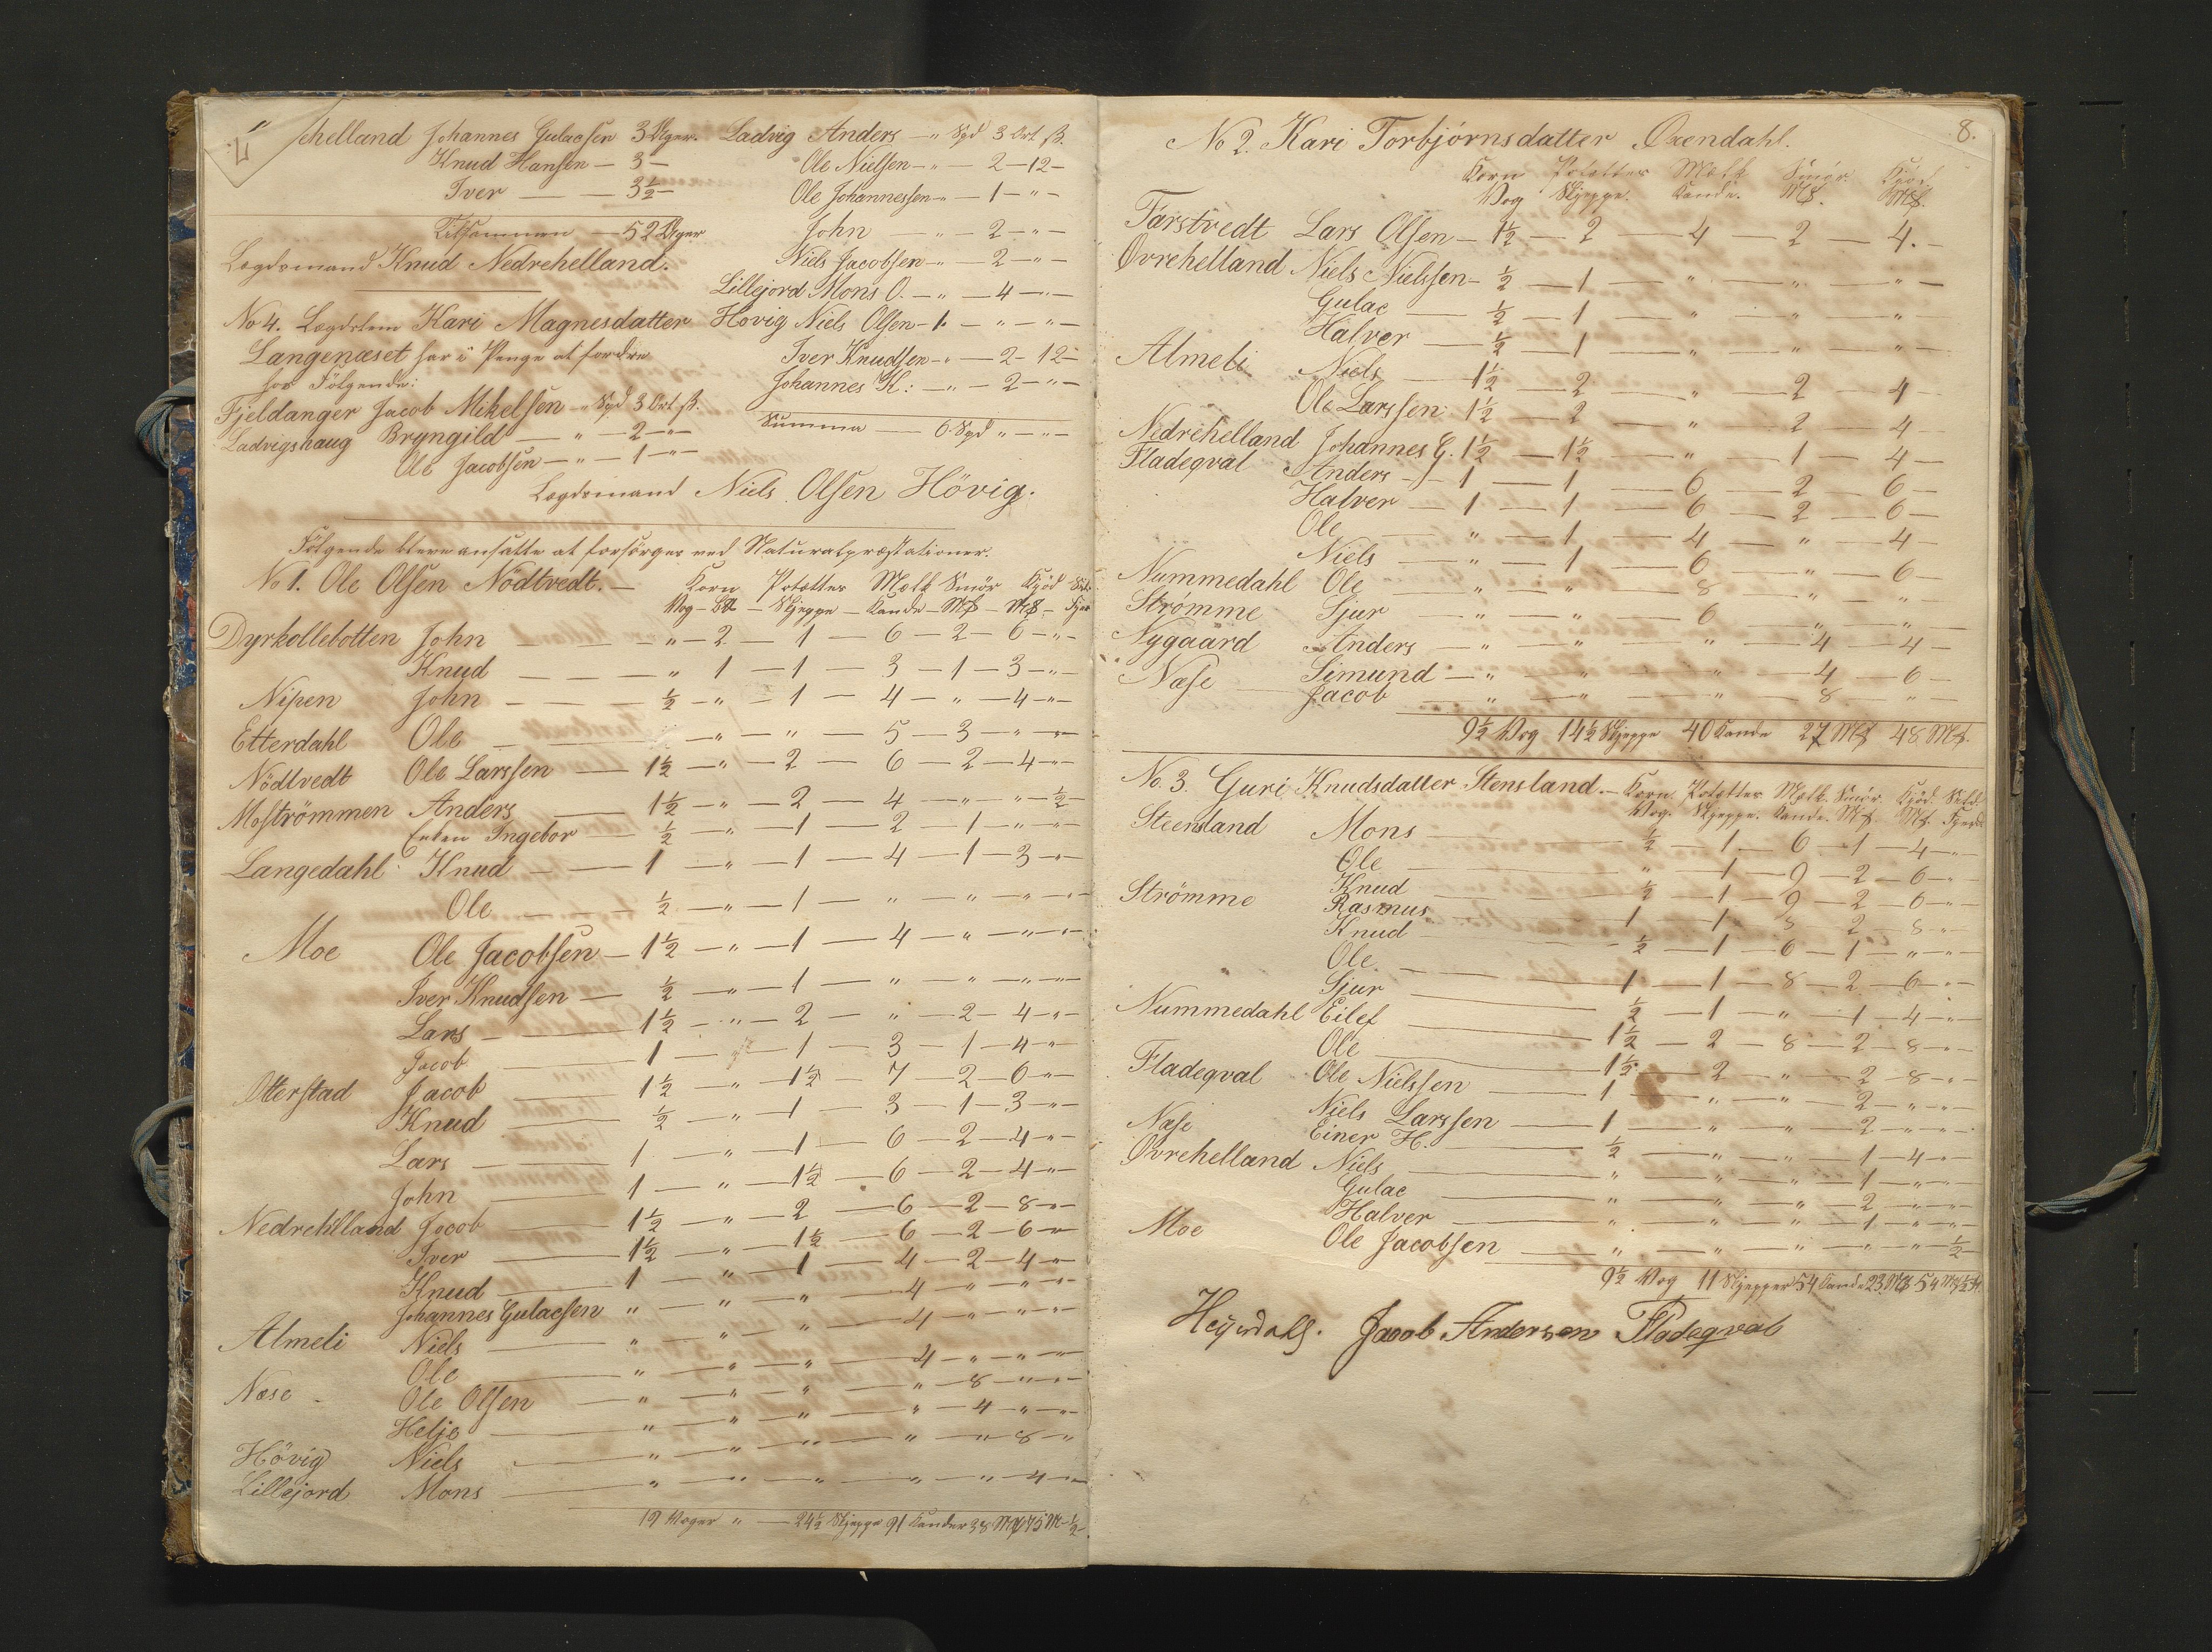 helland Johannes Gulacsen 3 Uger.
Knud Hansen — 3 —
Iver — — 3½ —
Tilsammen — 52 Uger
Lægdsmand Knud Nedrehelland.
No 4. Lægdslem Kari Magnesdatter
Langenæset har i Penge at fordre
hos Følgende:
Fjeldanger Jacob Mikelsen — " Spd 3 Ort ß.
Ladvigshaug Bryngild — " — 2 — " —
Ole Jacobsen — " — 1 — " —
Ladvig Anders — " Spd 3 Ort ß.
Ole Nielsen — " 2 — 12 —
Ole Johannessen — " — 1 — " —
John — " — 2 — " —
Niels Jacobsen — " — 2 — " —
Lillejord Mons O. — " — 4 — " —
Hovig Niels Olsen — 1 — " — " —
Iver Knudsen — " — 2 — 12 —
Johannes K: — " — 2 — " —
Summa — 6 Spd " — " —
Lægdsmand Niels Olsen Hövig.
Følgende bleve ansatte at forsörges ved Naturalpræstationer.
No 1. Ole Olsen Nödtvedt. — Korn Potetter Melk Smör Kjöd
Vog — L℔ — Skjeppe — Kande — M℔ — M℔ —
Dyrkollebotten John — " — 2 — 1 — 6 — 2 — 6 — " —
Knud — — — " 1 — 1 — 3 — 1 — 3 — " —
Nipen John — — — ½ — " — 1 — 4 — " — 4 — " —
Etterdahl Ole — " — " — 5 — 3 — " — " —
Nödtvedt Ole Larssen — 1½ — " — 2 — 6 — 2 — 4 — " —
Moströmmen Anders — 1½ — " — 2 — 4 — " — " — ½ —
Enken Ingebor — ½ — " — 1 — 2 — 1 — " — " —
Langedahl Knud — — 1 — " — 1 — 4 — 1 — 3 — " —
Ole — — — ½ — " — 1 — " — " — " — " —
Moe Ole Jacobsen — 1½ — " — 1 — 4 — " — " — " —
Iver Knudsen — ½ — " — 1 — " — " — " — " —
Lars — 1½ — " — 2 — " — 2 — 4 — " —
Jacob — 1 — " — 1 — 3 — 1 — 4 — " —
Otterstad Jacob — 1½ — " — 1½ — 7 — 2 — 6 — " —
Knud — ½ — " — 1 — 3 — 1 — 3 — " —
Lars — 1 — " — 1 — 6 — 2 — 4 — " —
John — 1 — " — 1½ — 6 — 2 — 4 — " —
Nedrehelland Jacob — 1½ — " — 2 — 6 — 2 — 8 — " —
Iver — 1½ — " — 1½ — 6 — 2 — 6 — " —
Knud — 1 — " — 1 — 4 — 2 — 4 — " —
Johannes Gulacsen " — " — " — 4 — " — " — " —
Almeli Niels — " — " — " — 4 — " — " — " —
Ole — " — " — " — 4 — " — " — " —
Næse — Ole Olsen — " — " — " — " — 8 — " — " —
Helje — " — " — " — " — 4 — " — " —
Hövig Niels — " — " — " — " — " — 8 — "
Lillejord Mons — " — " — " — " — " — 4 — " —
19 Voger " — 24½ Skjeppe 91 Kander 38 M℔ 75 M — ½ —
8.
No 2. Kari Torbjörnsdatter Øxendahl.
Korn Potetter Melk Smör. Kjöd
Vog Skjeppe. Kande. M℔. M℔.
Farstvedt Lars Olsen — 1½ — 2 — 4 — 2 — 4. —
Øvrehelland Niels Nielssen — ½ — 1 — " — " — " —
Gulac — ½ — 1 — " — " — " —
Halver — ½ — 1 — " — " — " —
Almeli Niels — 1½ — 2 — " — 2 — 4 —
Ole Larssen 1½ — 2 — " — 2 — 4 —
Nedrehelland Johannes G. 1½ — 1½ — " — 1 — 4 —
Fladeqval Anders — 1 — 1 — 6 — 2 — 6 —
Halver — 1 — 1 — 6 — 2 — 6 —
Ole — " — 1 — 4 — " — 4 —
Niels — " — 1 — 6 — " — 6 —
Nummedahl Ole — " — " — 8 — " — " —
Strømme Sjur — " — " — 6 — " — " —
Nygaard Anders — " — " — " — 4 — 4 —
Næse Simund — " — " — " — 4 — 6 —
Jacob — " — " — " — 8 — " —
9½ Vog 14½ Skjeppe 40 Kande 27 M℔ 48 M℔.
No. 3. Guri Knudsdatter Stensland. — Korn Potetter Melk. Smör. Kjöd. Sild
Vog. Skjeppe. Kande. M℔. M℔. Fjerd
Steensland Mons — ½ — 1 — 6 — 1 — 4 — " —
Ole — " — 1 — 9 — 2 — 6 — " —
Knud — ½ — 1 — 9 — 2 — 6 — " —
Strömme Rasmus — 1 — 1 — 8 — 2 — 8 — " —
Knud — ½ — 1 — 6 — 1 — " — " —
Ole — 1 — 1 — 8 — 2 — 6 — " —
Sjur — ½ — 1 — " — 1 — 4 — " —
Nummedahl Eilef — 1½ — 2 — 8 — 2 — 8 — " —
Ole — 1½ — 2 — " — 2 — 8 — " —
Fladeqval Ole Nielssen — 1 — " — " — 2 — " — " —
Niels Larssen — 1 — " — " — 2 — " — " —
Næse Einer H. — ½ — " — " — 1 — 4 — " —
Øvrehelland Niels — " — " — " — 1 — " — " —
Gulac — " — " — " — 2 — " — " —
Halver — " — " — " — 1 — " — " —
Moe Ole Jacobsen — " — " — " — " — " — ½ —
9½ Vog 11 Skjepper 54 Kande 23 M℔ 54 M℔ ½ Fj.
Heyerdahl. Jacob Andersen Fladeqval